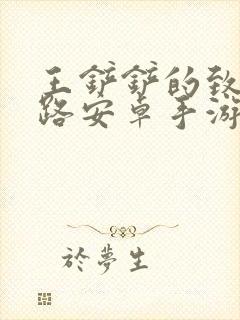 王鏟鏟的致
路安卓手游
於夢生